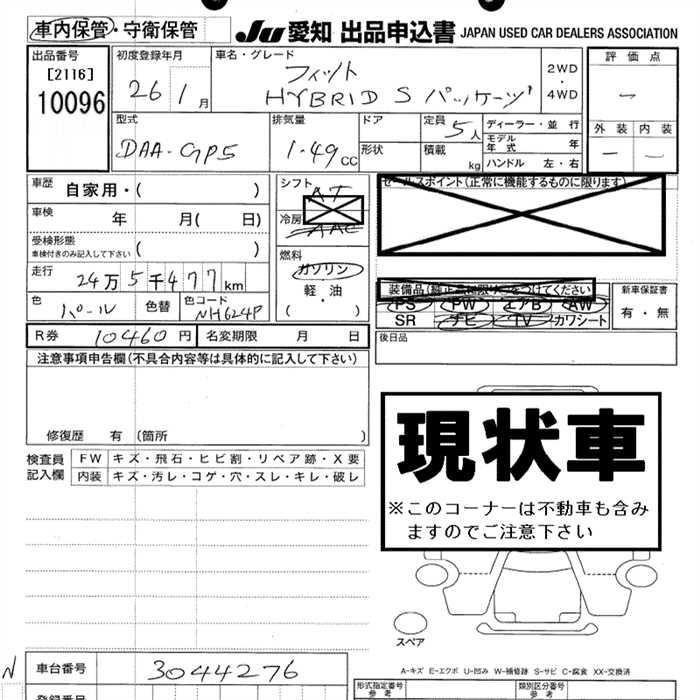 車内保管・守衛保管 JU 愛知 出品申込書 JAPAN USED CAR DEALERS ASSOCIATION
出品番号 初度登録年月 車名・グレード 評価点
[2116] 26 1月 フィット 2WD
10096 HYBRID S パッケージ 4WD
外装 内装
型式 排気量 ドア 定員 5人 ディーラー・並行
DAA-GP5 1.49cc 形状 積載 kg モデル年式 年
ハンドル 左・右
車歴 自家用・( ) シフト AT セールスポイント(正常に機能するものに限ります)
車検 年 月( 日) 冷房 AAC
受検形態 ( )
車検付きのみ記入して下さい
燃料
走行 24万5千477km ガソリン 装備品(純正品に限り○をつけてください) 新車保証書
軽・油 PS PW エアB AW 有・無
色 パール 色替 色コード NH624P ( ) SR ナビ TV カワシート
R券 10460円 名変期限 月 日 後日品
注意事項申告欄(不具合内容等は具体的に記入して下さい)
現状車
※このコーナーは不動車も含み
ますのでご注意下さい
修復歴 有 (箇所 )
検査員 FW キズ・飛石・ヒビ割・リペア跡・X要
記入欄 内装 キズ・汚レ・コゲ・穴・スレ・キレ・破レ
スペア
A-キズ E-エクボ U-凹み W-補修跡 S-サビ C-腐食 XX-交換済
N 車台番号 3044276
登録番号 形式指定番号 類別区分番号
参考 参考